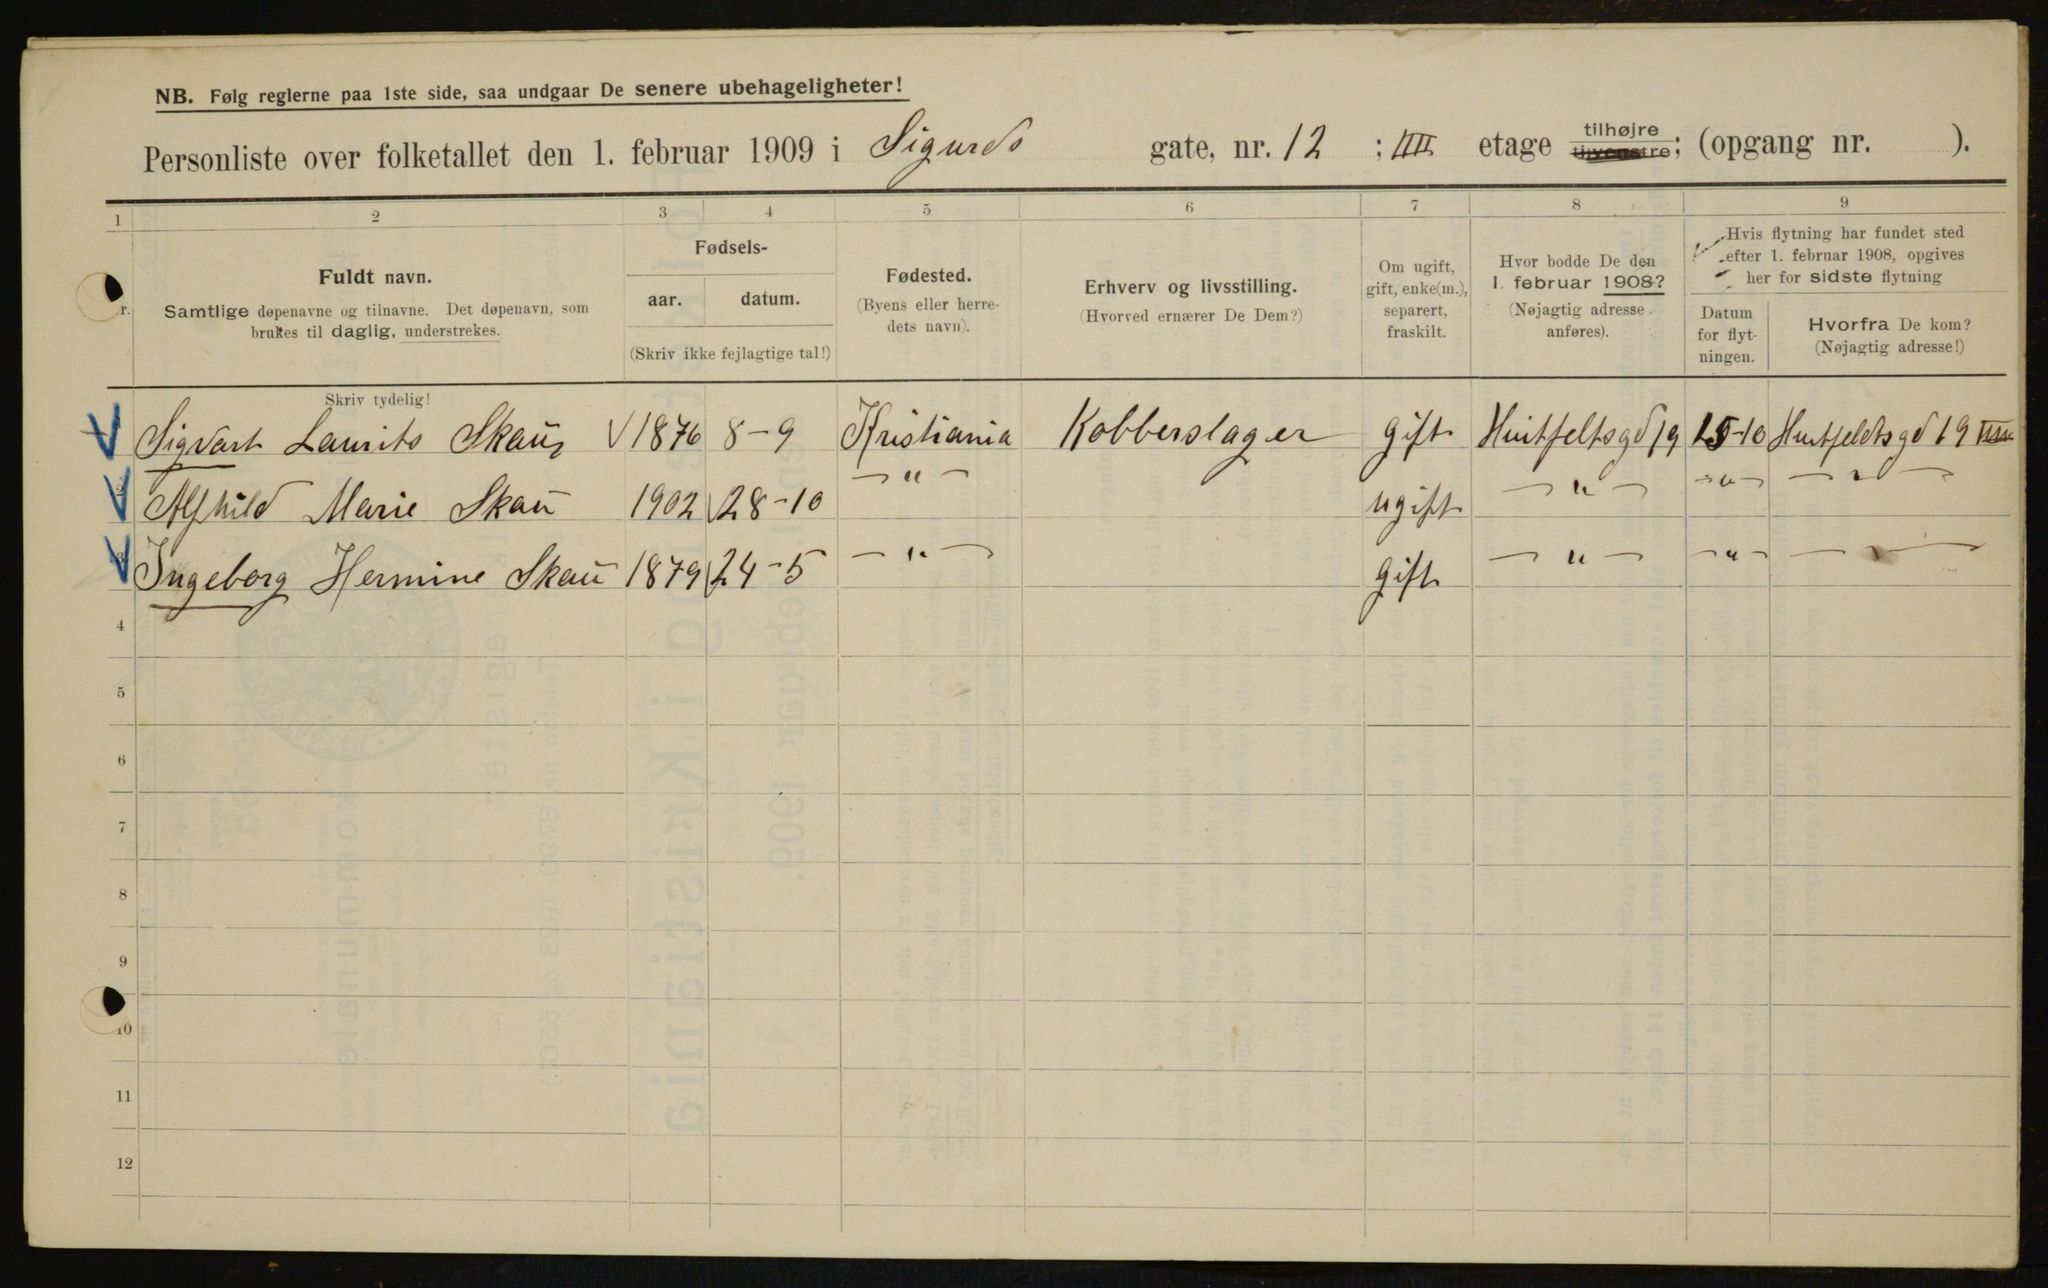 NB. Følg reglerne paa 1ste side, saa undgaar De senere ubehageligheter!
Personliste over folketallet den 1. februar 1909 i Sigurds gate, nr. 12 ; IIII etage tilhøjre tilvenstre; (opgang nr. ).
1 2 3 4 5 6 7 8 9
Nr.
Fuldt navn.
Samtlige døpenavne og tilnavne. Det døpenavn, som
brukes til daglig, understrekes.
Skriv tydelig!
Fødsels-
aar. datum.
(Skriv ikke fejlagtige tal!)
Fødested.
(Byens eller herre-
dets navn).
Erhverv og livsstilling.
(Hvorved ernærer De Dem?)
Om ugift,
gift, enke(m.),
separert,
fraskilt.
Hvor bodde De den
1. februar 1908?
(Nøjagtig adresse
anføres).
Hvis flytning har fundet sted
efter 1. februar 1908, opgives
her for sidste flytning
Datum
for flyt-
ningen.
Hvorfra De kom?
(Nøjagtig adresse!)
Sigvart Laurits Skau 1876 8-9 Kristiania Kobberslager gift Huitfeltsgd 19 15-10 Huitfeldtsgd 19 IIII
2 Alfhild Marie Skau 1902 28-10 -"- ugift -"- -"- -"-
3 Ingeborg Hermine Skau 1879 24-5 -"- gift -"- -"- -"-
4
5
6
7
8
9
10
11
12